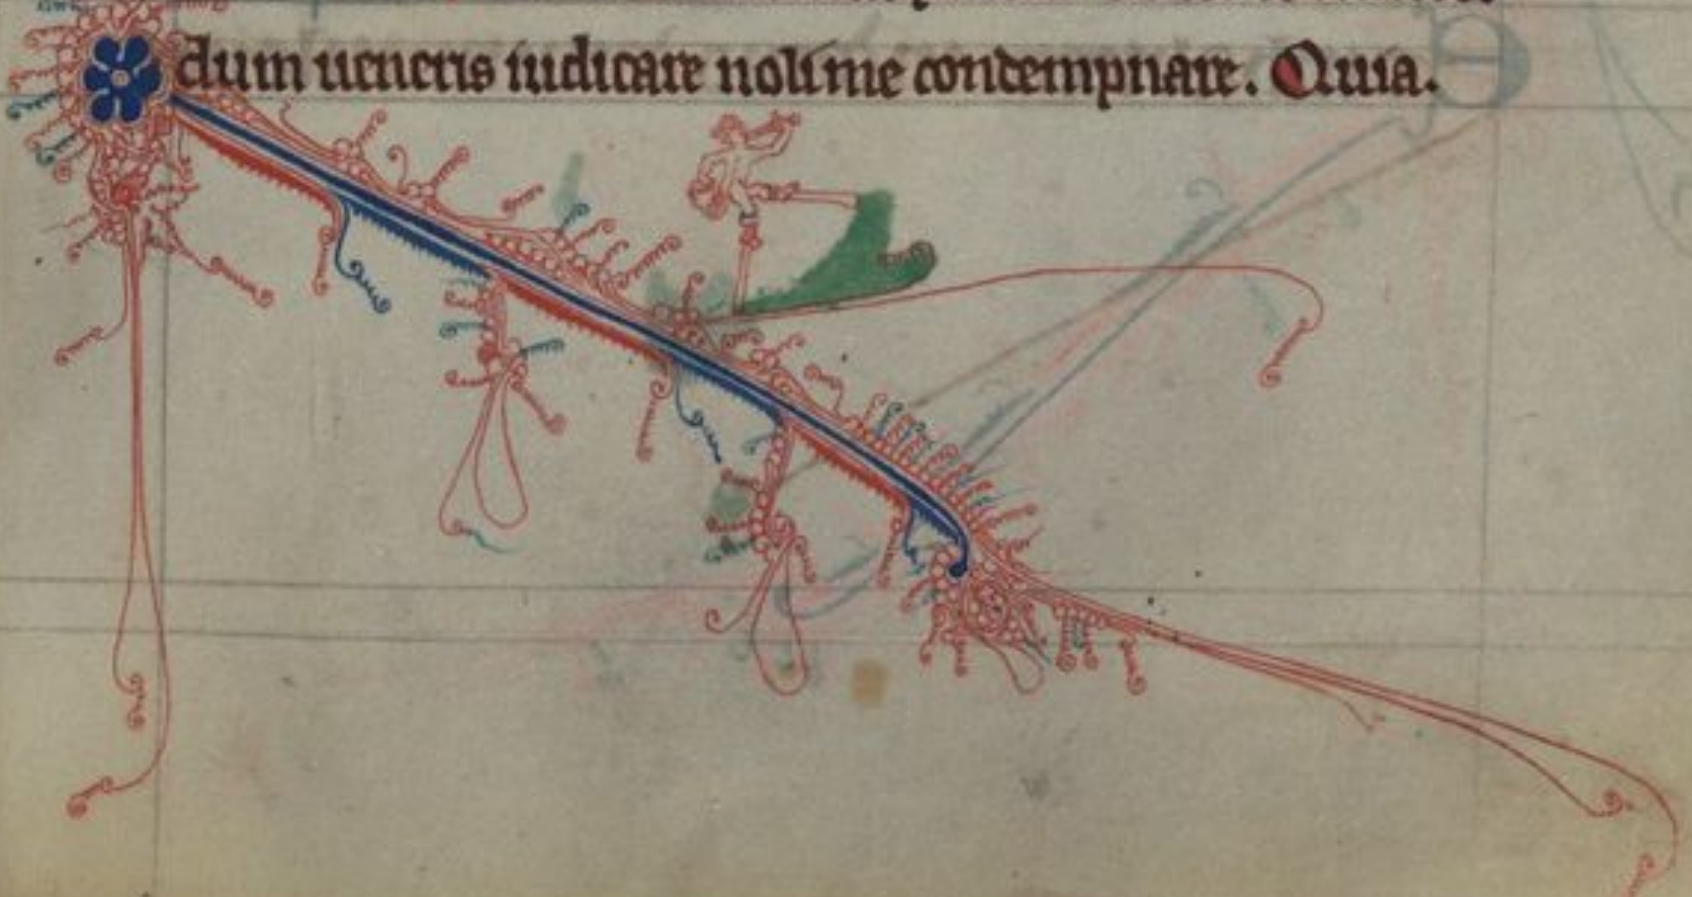 dum ueneris iudicare noli me contempnare. Quia.